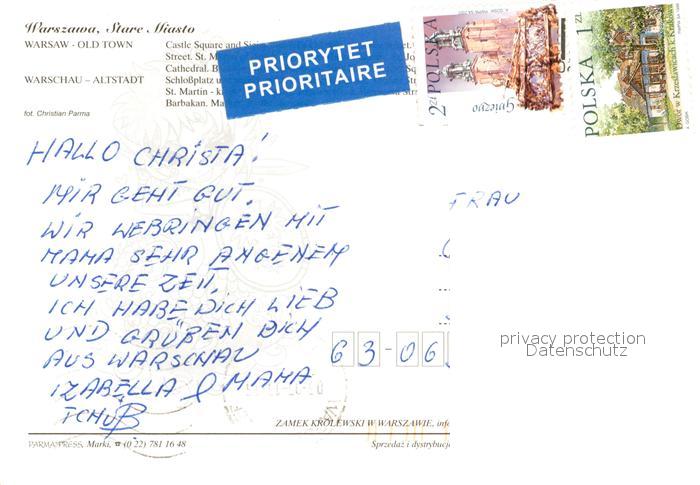 Warszawa, Stare Miasto
WARSAW - OLD TOWN
Castle Square and
Street. St. M
Cathedral. B
WARSCHAU – ALTSTADT
Schloßplatz
St. Martin - k
Barbakan. Ma
fot. Christian Parma
PRIORYTET
PRIORITAIRE
2 zł POLSKA
POLSKA 1 ZŁ
HALLO CHRISTA!
MIR GEHT GUT.
WIR WEBRINGEN MIT
MAMA SEHR ANGENEM
UNSERE ZEIT.
ICH HABE DICH LIEB
UND GRÜßEN DICH
AUS WARSCHAU
IZABELLA & MAMA
TCHUß
FRAU
63-06
privacy protection
Datenschutz
ZAMEK KRÓLEWSKI W WARSZAWIE, info
PARMA PRESS, Marki, ☎ (0 22) 781 16 48
Sprzedaż i dystrybucj